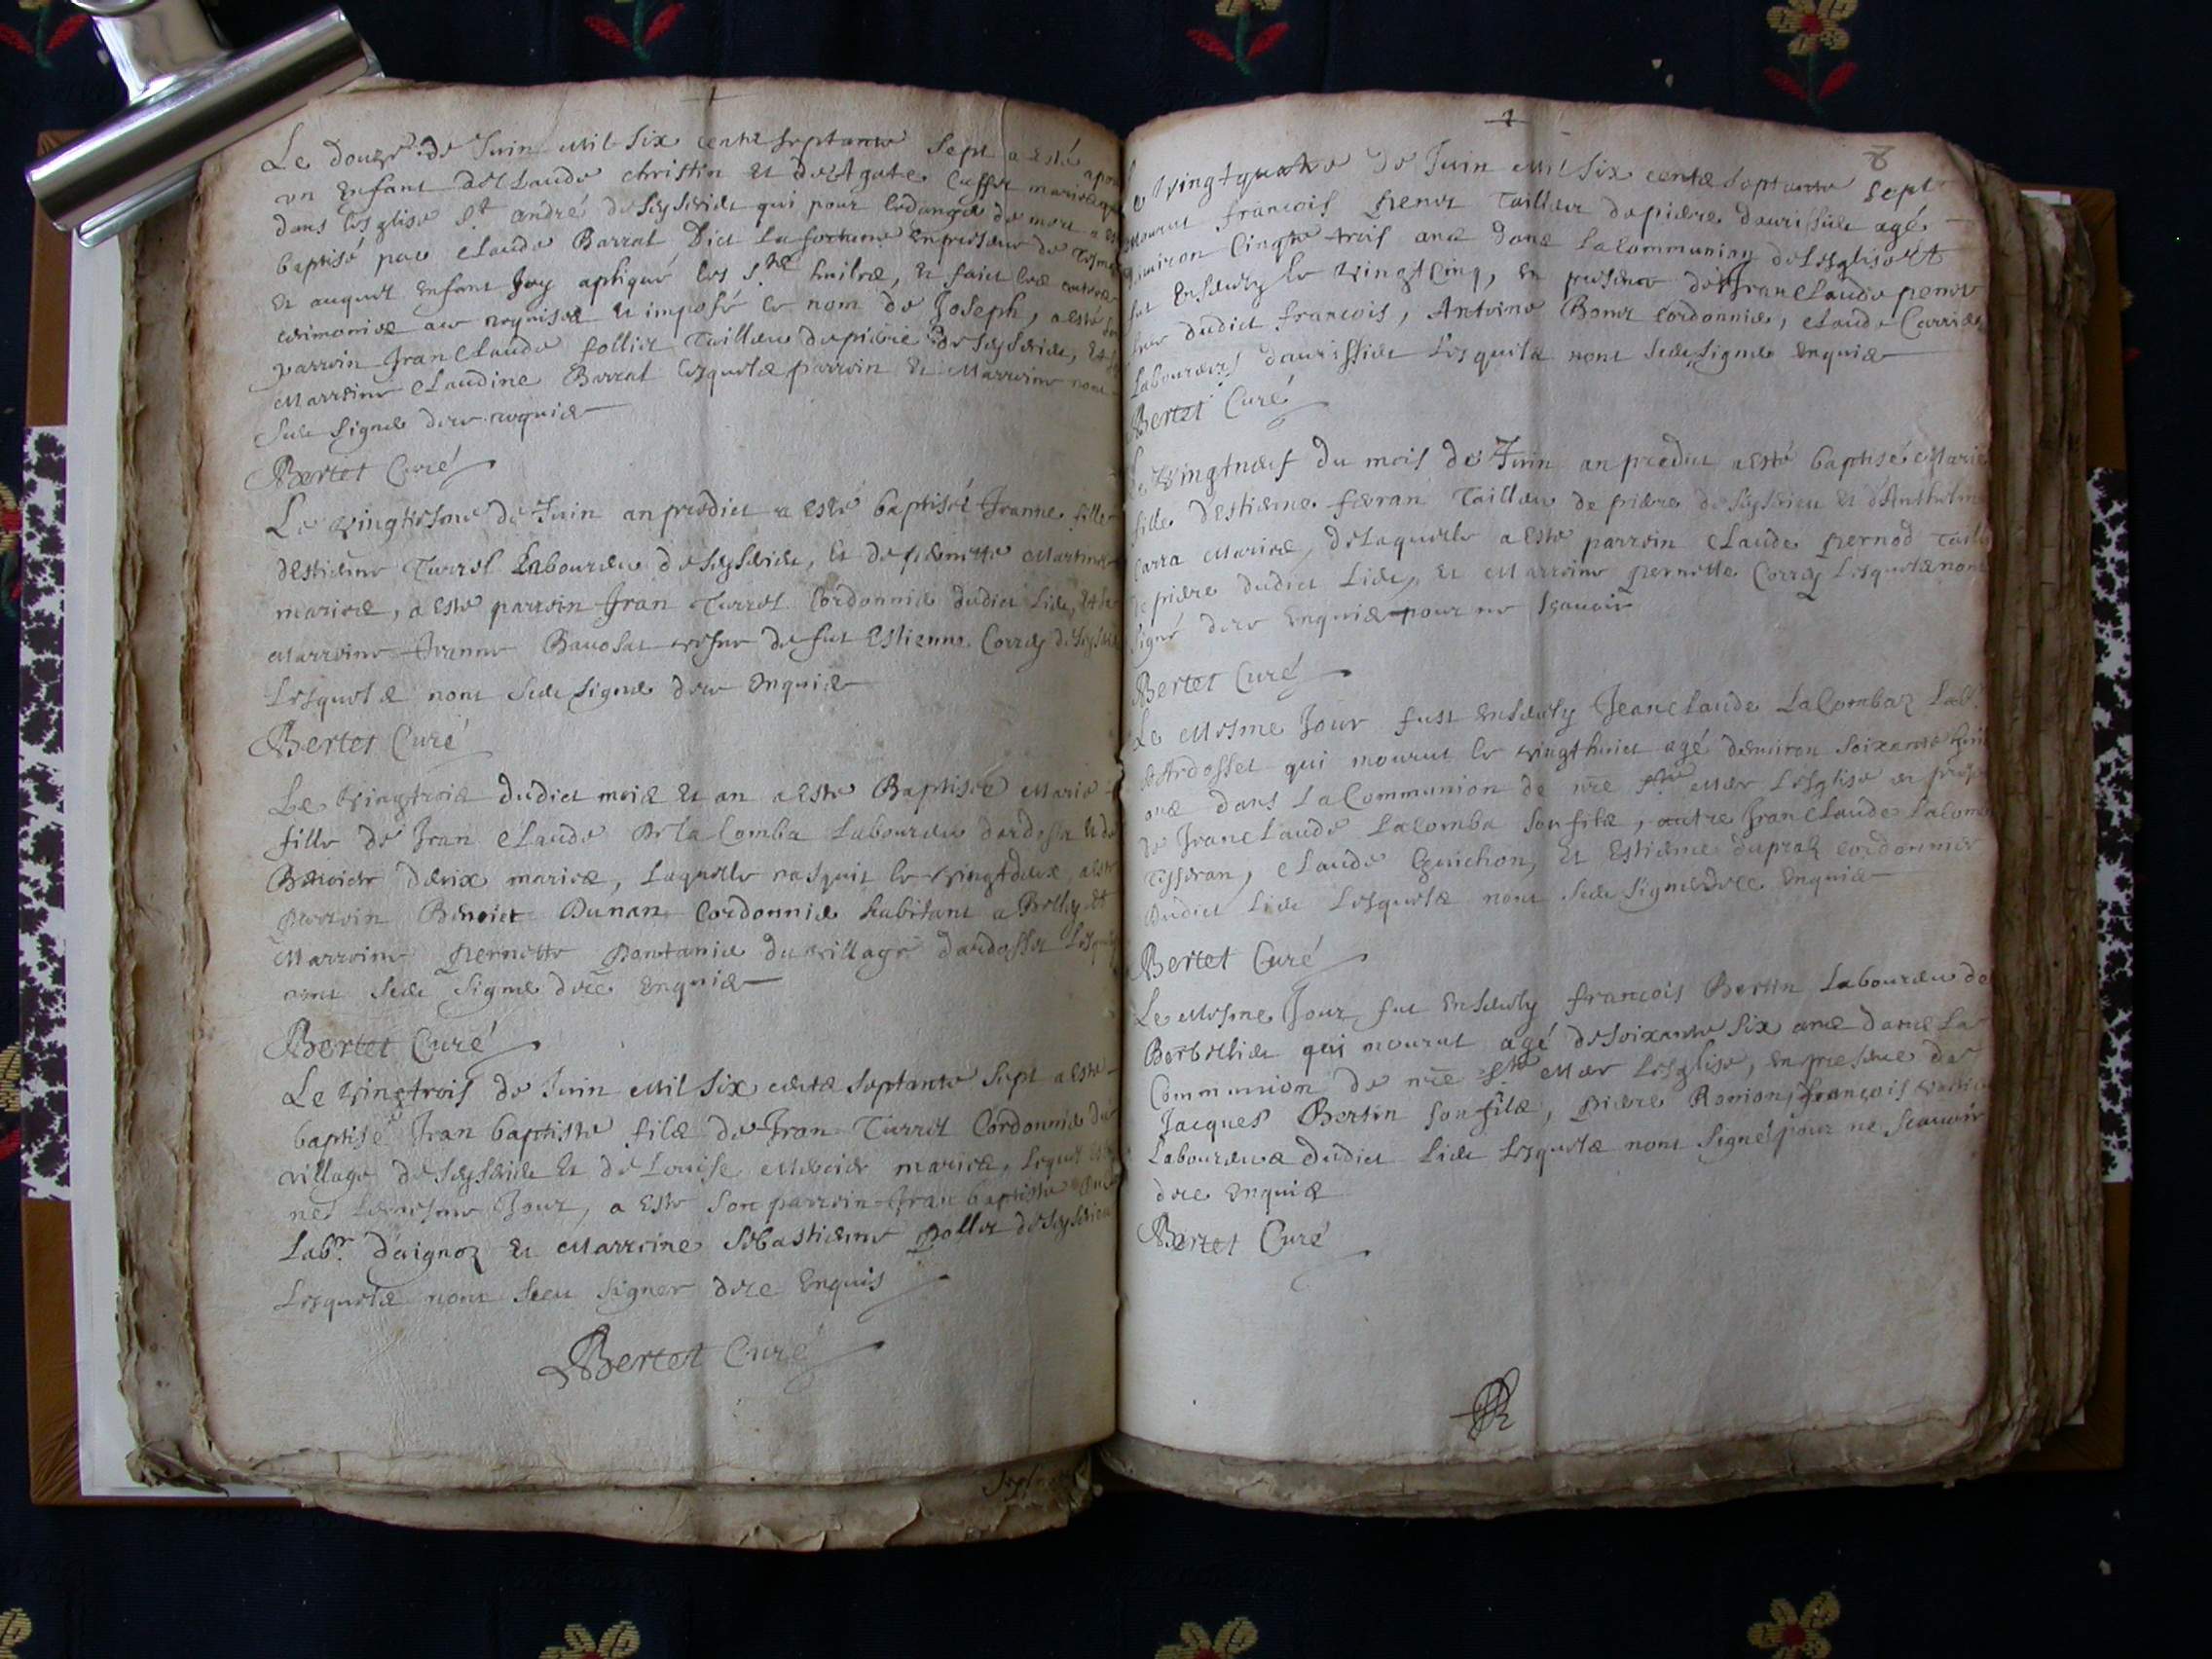 Le douze de Juin Mil Six cents septante Sept a esté
un Enfant de Claude christin et de Agate Cuffet
dans lesglise St andré de Seyssieu qui pour le danger de mort a
baptisé par Claude Barral Dict La fortune En presence de
Et auquel Enfant Jay apliqué les Stes huiles, et faict les autres
cerimonies et imposé le nom de Joseph, a esté
parrein Jean Claude follier Tailleur de pierre de Seyssieu, Et
Marreine Claudine Barral lesquels parrein et Marreine nont
Seu signer de ce requis
Bertet Curé
Le vingtiesme de Juin an predict a esté baptisée Jeanne fille
destienne Turrel Laboureur de Seyssieu, et de pernette Martin
mariés, a esté parrein Jean Turrel Cordonnier dudict Lieu,
Marreine Jeanne Bavosat vefve de fut Estienne Correy
Lesquels nont Seu signer de ce Enquis
Bertet Curé
Le vingtrois dudict mois et an a esté Baptisée Marie
fille de Jean Claude De la Comba Laboureur dardossa et de
mariés, Laquelle nasquit le vingtdeux, a esté
parrein Benoict Dunan Cordonnier habitant a Belley et
Marreine pernette Pontanier du village dardosset
nont Seu Signer de ce Enquis
Bertet Curé
Le vingtrois de Juin Mil Six cents Septante Sept a esté
baptisé Jean baptiste fils de Jean Turrel Cordonnier du
village de Seyssieu et de Louise Mercier mariés, Lequel
né Le mesme Jour, a esté Son parrein Jean baptiste
Labr. daignoz et Marreine Sebastienne Pollet de Seyssieu
Lesquels nont Sceu Signer de ce Enquis
Bertet Curé
8
Le vingtquatre de Juin Mil Six cents Septante Sept
Mourut francois perret Tailleur de pierre agé
Denviron Cinqte trois ans dans La Communion de Lesglise et
fut Ensevely le vingtCinq, en presence de Jean Claude
dudict francois, Antoine Bonet cordonnier, Claude Carrier
Laboureurs Lesquels nont Seu Signer Enquis
Bertet Curé
Le vingtneuf du mois de Juin an predict a esté baptisé Marie
fille dEstienne feran Tailleur de pierre de Seyssieu et d'Anthelme
Carra Mariés, de Laquelle a esté parrein Claude pernod
de pierre dudict Lieu, et Marreine pernette Correy Lesquels nont
signé de ce Enquis pour ne Sçavoir
Bertet Curé
Le Mesme Jour fust Ensevely Jean Claude LaCombaz Labr.
dArdosset qui mourut le vingthuict agé denviron Soixante
ans dans La Communion de nre Ste Mere Lesglise
de JeanClaude Lacomba Son fils, autre Jean Claude
Tisseran, Claude Guichon, et Estienne dupraz cordonnier
Dudict Lieu Lesquels nont Seu Signer de ce Enquis
Bertet Curé
Le Mesme Jour, fut Ensevely francois Bertin Laboureur de
qui mourut agé de Soixante Six ans dans La
Communion de nre Ste Mere Lesglise, en presence de
Jacques Bertin Son fils, pierre françois
Laboureurs dudict Lieu Lesquels nont Signé pour ne Scavoir
de ce Enquis
Bertet Curé